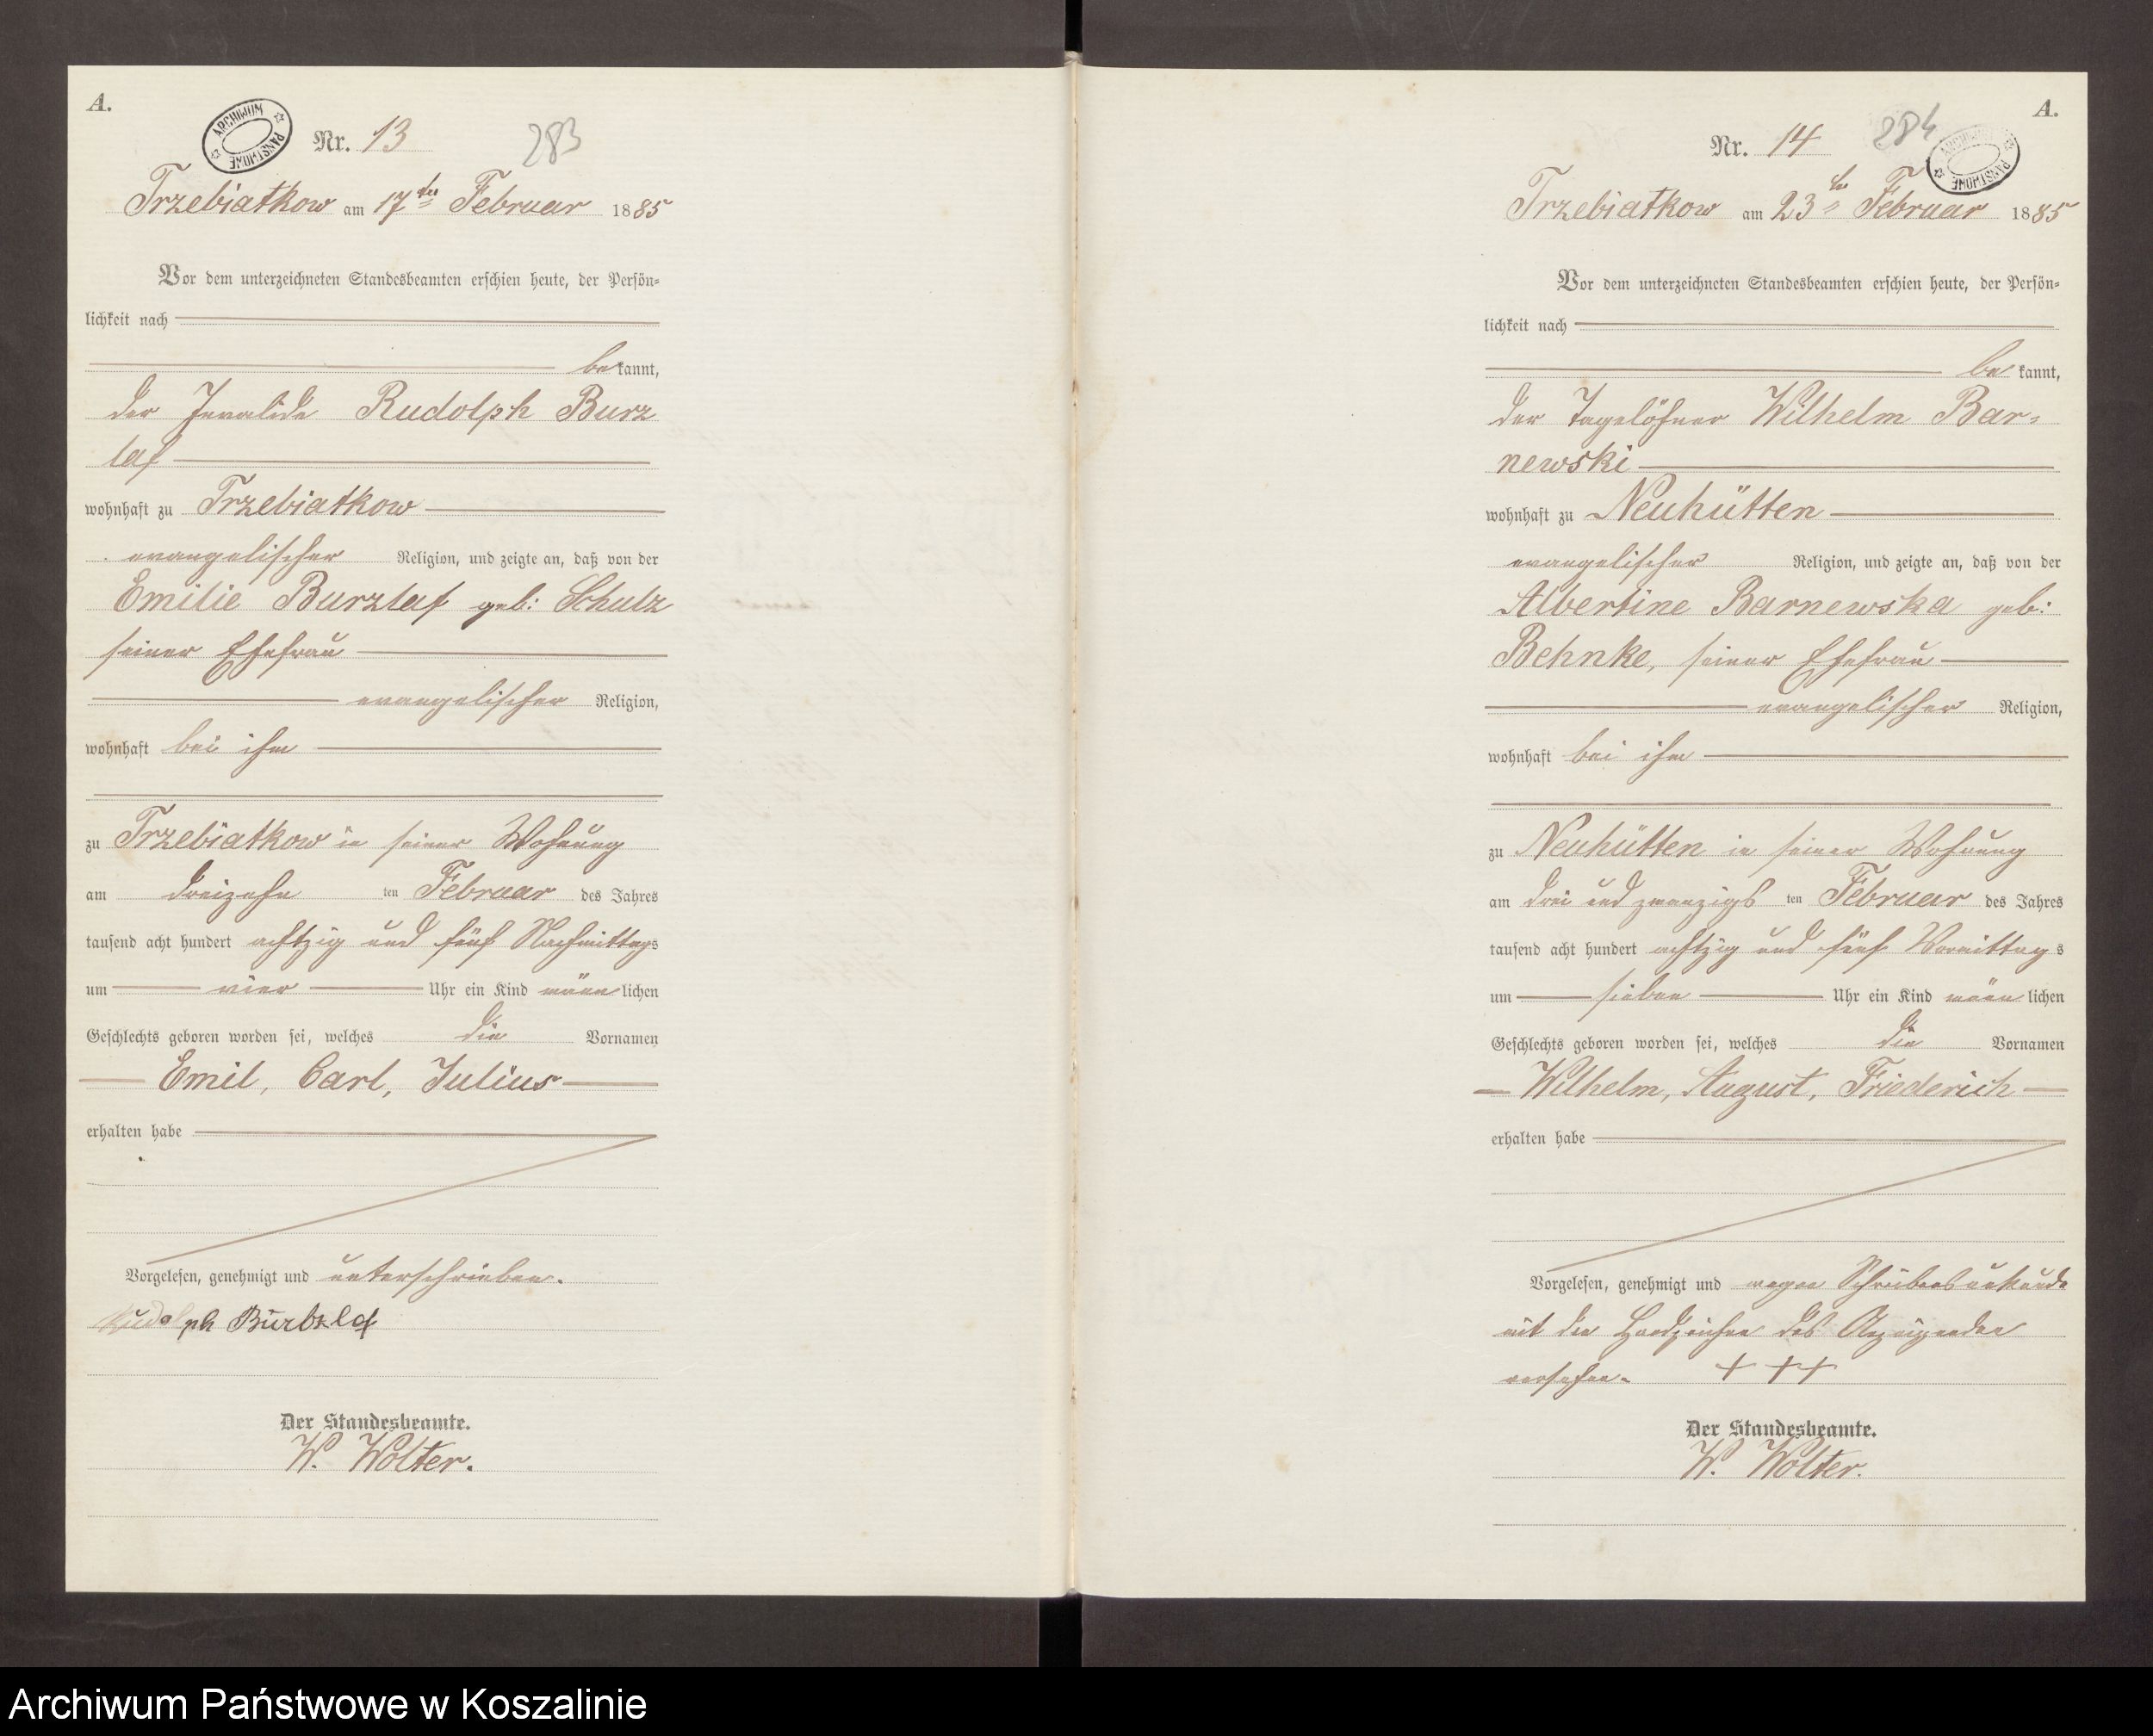 A.
ARCHIWUM PAŃSTWOWE
Nr. 13
283
Trzebiatkow am 17ten Februar 1885
Vor dem unterzeichneten Standesbeamten erschien heute, der Persön-
lichkeit nach
bekannt,
der Invalide Rudolph Burz
laf
wohnhaft zu Trzebiatkow
evangelischer Religion, und zeigte an, daß von der
Emilie Burzlaf geb: Schulz
seiner Ehefrau
evangelischer Religion,
wohnhaft bei ihm
zu Trzebiatkow in seiner Wohnung
am dreizehn ten Februar des Jahres
tausend acht hundert achtzig und fünf Nachmittags
um vier Uhr ein Kind männlichen
Geschlechts geboren worden sei, welches die Vornamen
Emil, Carl, Julius
erhalten habe
Vorgelesen, genehmigt und unterschrieben.
Rudolph Burbzlaf
Der Standesbeamte.
W. Wolter.
A.
Nr. 14
284
ARCHIWUM PAŃSTWOWE
Trzebiatkow am 23ten Februar 1885
Vor dem unterzeichneten Standesbeamten erschien heute, der Persön-
lichkeit nach
bekannt,
der Tagelöhner Wilhelm Bar-
newski
wohnhaft zu Neuhütten
evangelischer Religion, und zeigte an, daß von der
Albertine Barnewska geb:
Behnke, seiner Ehefrau
evangelischer Religion,
wohnhaft bei ihm
zu Neuhütten in seiner Wohnung
am drei und zwanzigs ten Februar des Jahres
tausend acht hundert achtzig und fünf Vormittags
um sieben Uhr ein Kind männlichen
Geschlechts geboren worden sei, welches die Vornamen
Wilhelm, August, Friederich
erhalten habe
Vorgelesen, genehmigt und wegen Schreibensunkunde
mit den Handzeichen des Anzeigenden
versehen. + + +
Der Standesbeamte.
W. Wolter.
Archiwum Państwowe w Koszalinie